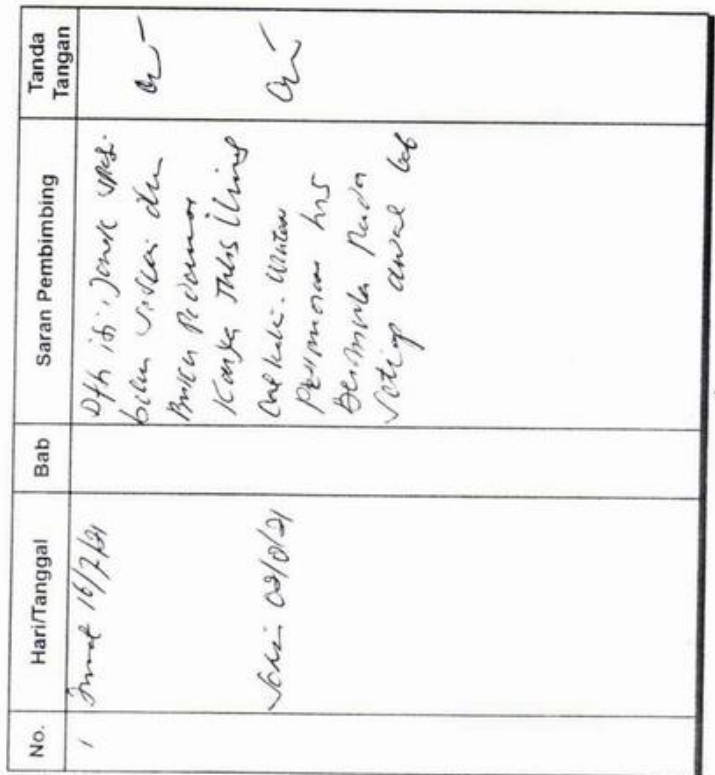 No. Hari/Tanggal Bab Saran Pembimbing Tanda Tangan
1 Jumat 16/7/21 Dfh isi, Jarak spasi
belum sesuai dgn
Buku Pedoman
Karya Tulis Ilmiah
Senin 02/8/21 Cat kaki. Urutan
Penomoran hrs
Bermula Pada
Setiap awal bab